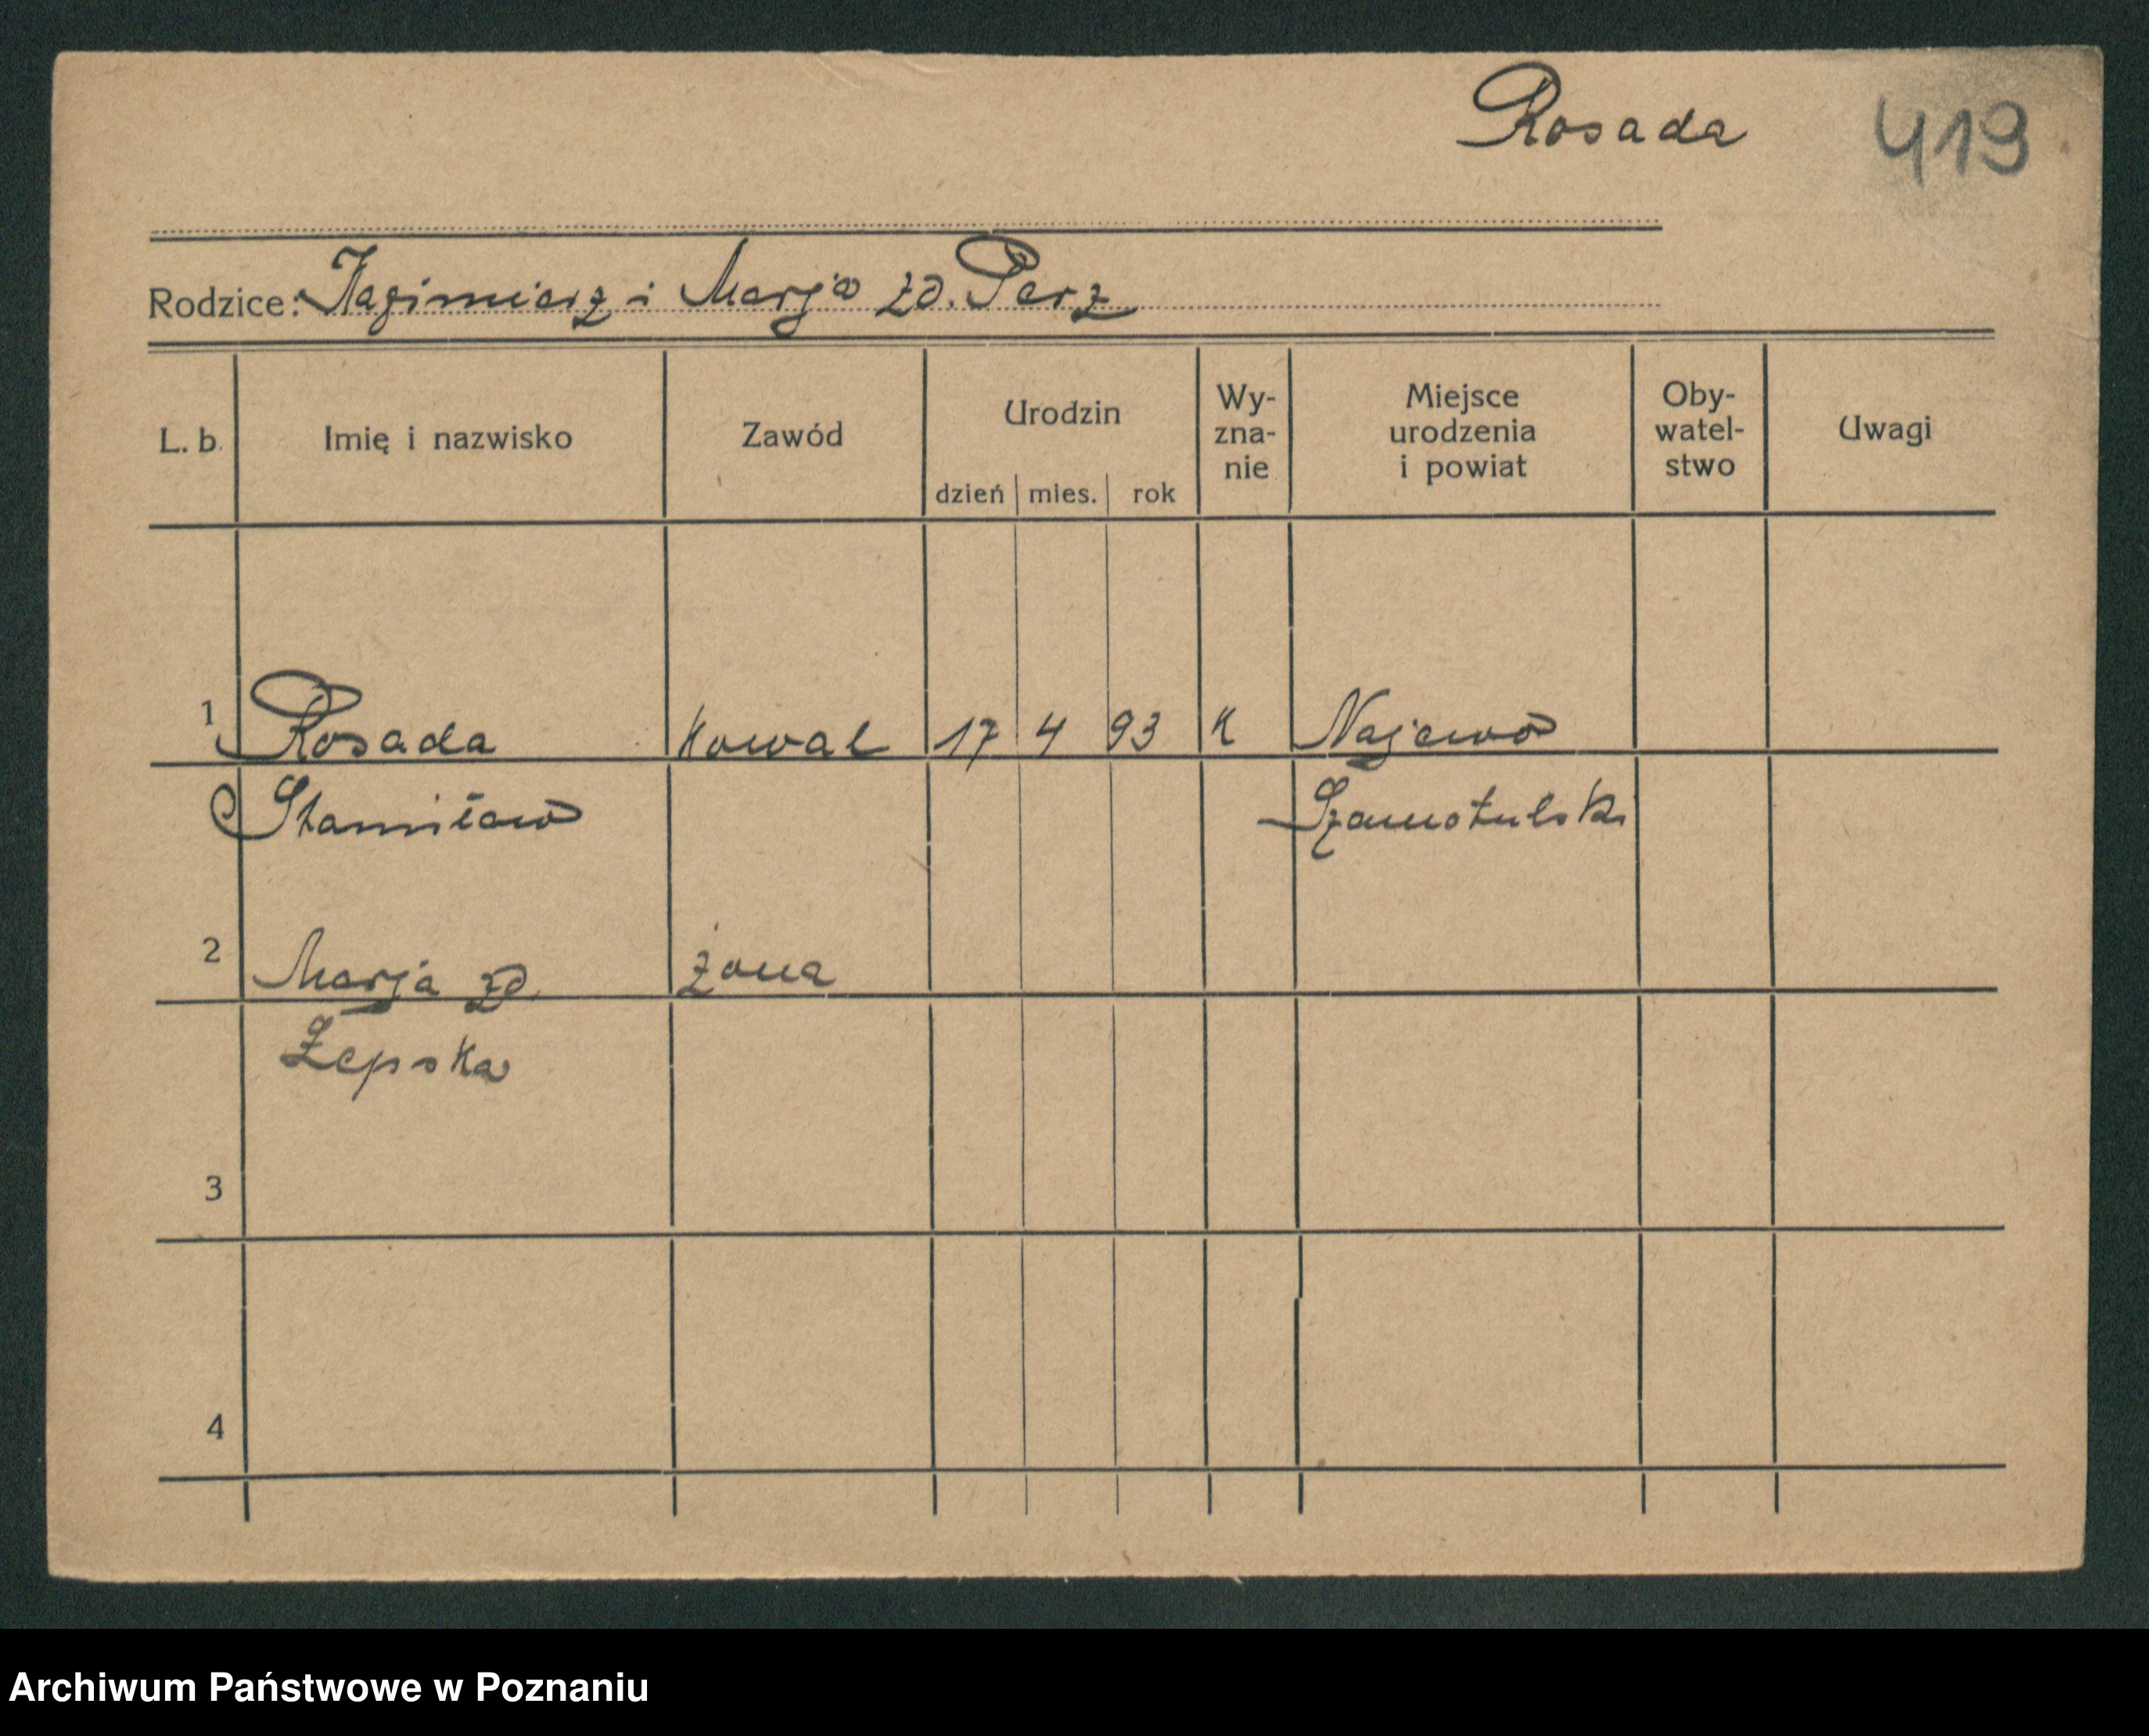 Rosada 419
Rodzice: Kazimierz i Marja zd. Perz
L. b. Imię i nazwisko Zawód Urodzin dzień mies. rok Wy-zna-nie Miejsce urodzenia i powiat Oby-watel-stwo Uwagi
1 Rosada Kowal 17 4 93 K Najewo
Stanisław Szamotulski
2 Marja zd. żona
Żepska
3
4
Archiwum Państwowe w Poznaniu